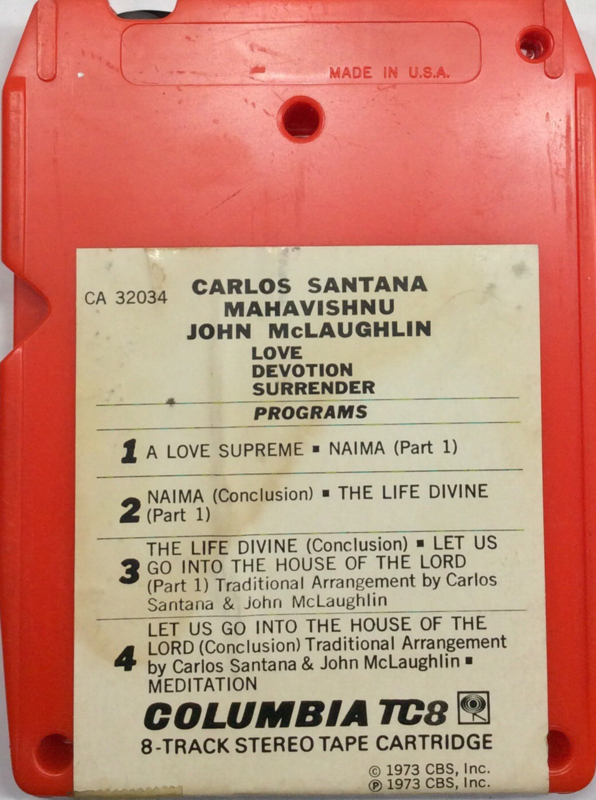 MADE IN U.S.A.
CA 32034
CARLOS SANTANA
MAHAVISHNU
JOHN McLAUGHLIN
LOVE
DEVOTION
SURRENDER
PROGRAMS
1 A LOVE SUPREME ▪ NAIMA (Part 1)
2 NAIMA (Conclusion) ▪ THE LIFE DIVINE
(Part 1)
3 THE LIFE DIVINE (Conclusion) ▪ LET US
GO INTO THE HOUSE OF THE LORD
(Part 1) Traditional Arrangement by Carlos
Santana & John McLaughlin
4 LET US GO INTO THE HOUSE OF THE
LORD (Conclusion) Traditional Arrangement
by Carlos Santana & John McLaughlin ▪
MEDITATION
COLUMBIA TC8
8-TRACK STEREO TAPE CARTRIDGE
© 1973 CBS, Inc.
℗ 1973 CBS, Inc.